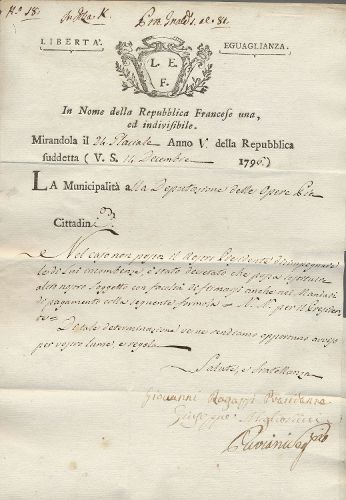 N.o 181
LIBERTA'.
EGUAGLIANZA.
L. E.
F.
In Nome della Repubblica Francese una,
ed indivisibile.
Mirandola il 24 Anno V. della Repubblica
suddetta ( V. S. 14 Decembre 1796)
LA Municipalità alla Deputazione delle Opere Pie
Cittadini
Nel caso non possa il vostro Presidente disimpegnare
le di lui incombenze, è stato decretato che possa sostituire
altro vostro Soggetto con facoltà di firmarsi anche nei Mandati
di pagamento colla seguente formola = N. N. per il
Di tale determinazione ve ne rendiamo avviso
per vostro lume, e regola.
Salute, e fratellanza
Giovanni Ragazzi Presidente
Giuseppe